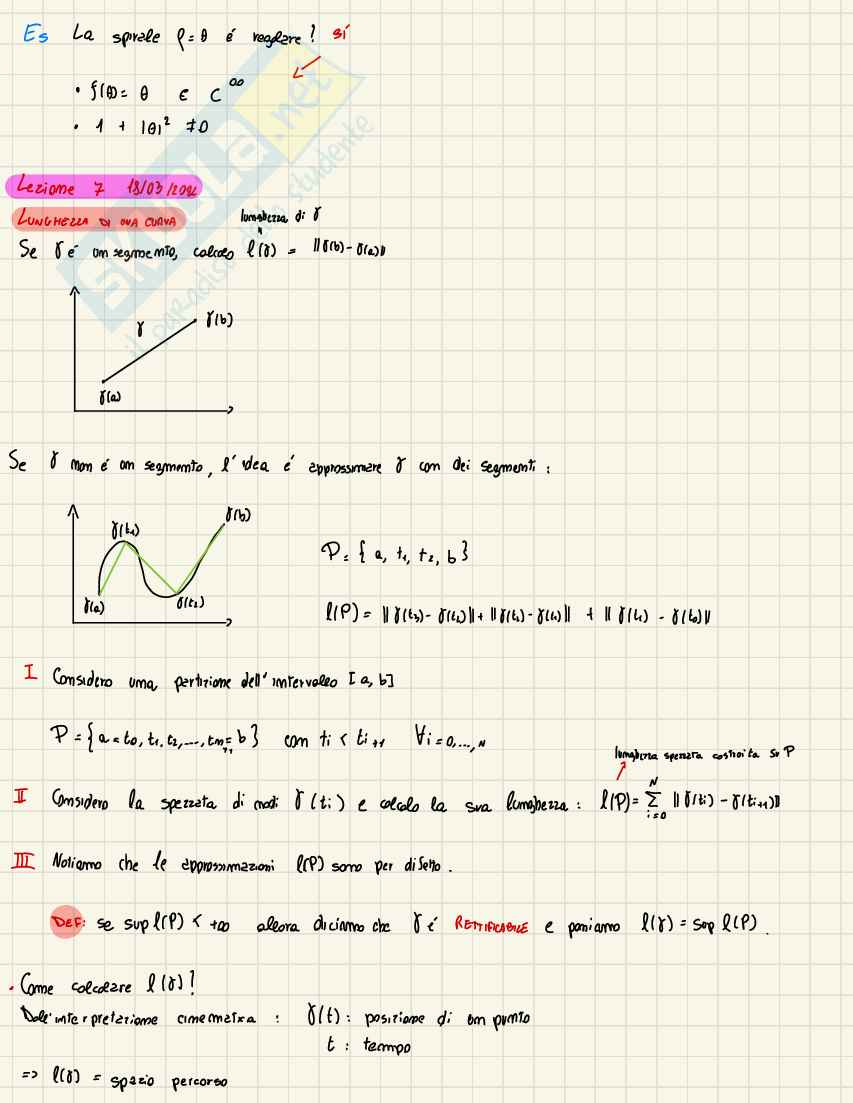 Es La spirale ρ = θ é regolare? sí
• f(θ) = θ ∈ C^∞
• 1 + |θ|² ≠ 0
SKUOLA.net
il paradiso dello studente
Lezione 7 18/03/2022
LUNGHEZZA DI UNA CURVA
lunghezza di γ
Se γ é un segmento, calcolo l(γ) = ||γ(b) - γ(a)||
γ
γ(b)
γ(a)
Se γ non é un segmento, l'idea é approssimare γ con dei segmenti:
γ(b)
γ(t₁)
γ(a)
γ(t₂)
P = { a, t₁, t₂, b }
l(P) = || γ(t₃) - γ(t₂) || + || γ(t₂) - γ(t₁) || + || γ(t₁) - γ(t₀) ||
I Considero una partizione dell'intervallo [a, b]
P = { a = t₀, t₁, t₂, ..., tₙ₊₁ = b } con tᵢ < tᵢ₊₁ ∀i = 0, ..., N
lunghezza spezzata costruita su P
II Considero la spezzata di nodi γ(tᵢ) e calcolo la sua lunghezza: l(P) = ∑_{i=0}^{N} || γ(tᵢ) - γ(tᵢ₊₁) ||
III Notiamo che le approssimazioni l(P) sono per difetto.
DEF: se sup l(P) < +∞ allora diciamo che γ é RETTIFICABILE e poniamo l(γ) = sup l(P).
• Come calcolare l(γ)?
Dall'interpretazione cinematica: γ(t): posizione di un punto
t: tempo
=> l(γ) = spazio percorso